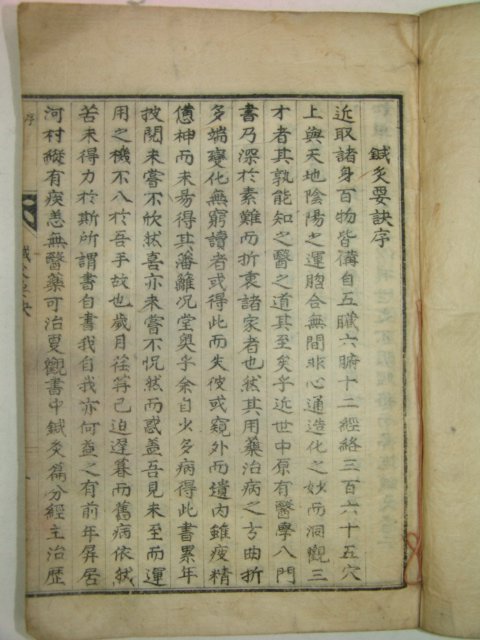 鍼灸要訣序
近取諸身百物皆備自五臟六腑十二經絡三百六十五穴
上與天地陰陽之運脗合無間非心通造化之妙而洞觀三
才者其孰能知之醫之道其至矣乎近世中原有醫學入門
書乃深於素難而折衷諸家者也然其用藥治病之方曲折
多端變化無窮讀者或得此而失彼或窺外而遺內雖疲精
憊神而未易得其藩籬况堂奧乎余自少多病得此書累年
披閱未嘗不欣然喜亦未嘗不怳然而惑盖吾見未至而運
用之機不入於吾手故也歲月荏苒已迫遲暮而舊病依然
苦未得力於斯所謂書自書我自我亦何益之有前年屛居
河村縱有疾恙無醫藥可治夏觀書中鍼灸篇分經主治歷
序
鍼灸要訣